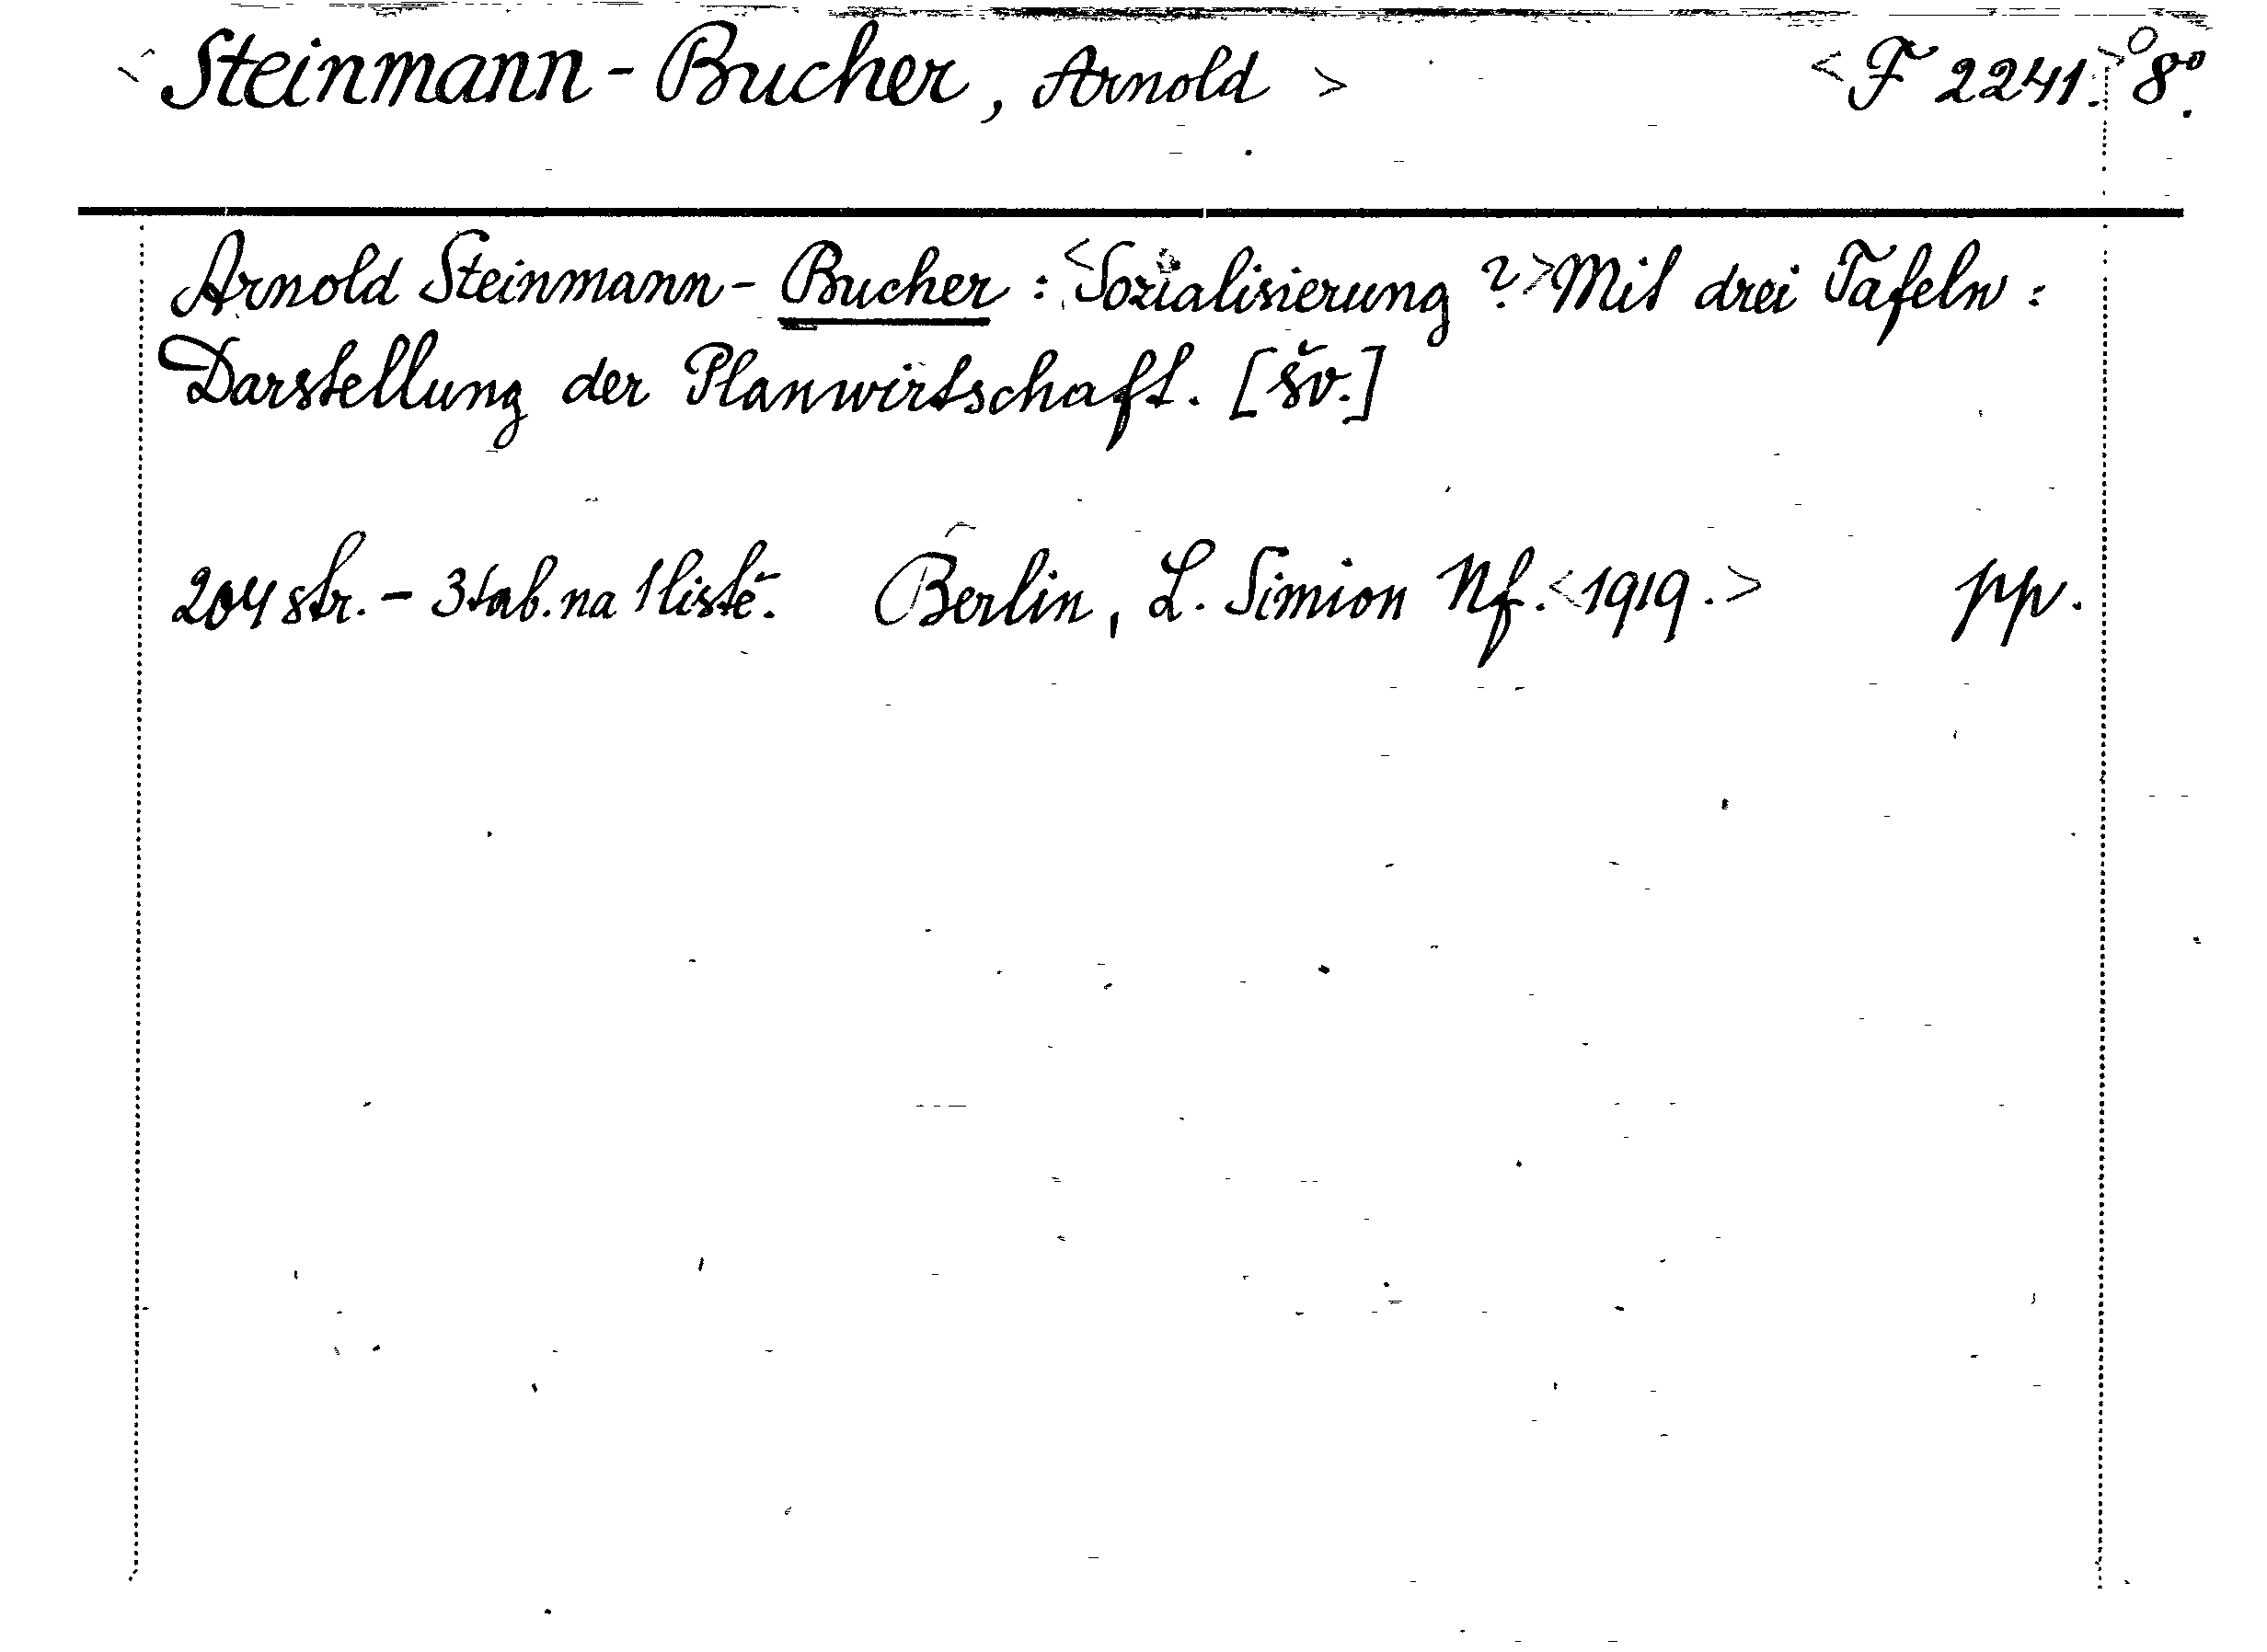 <Steinmann-Bucher, Arnold> <F 2241.> 8°.
Arnold Steinmann-Bucher: <Sozialisierung?> Mit drei Tafeln:
Darstellung der Planwirtschaft. [šv.]
204 str. - 3 tab. na 1 listě. Berlin, L. Simion Nf. <1919.> pp.